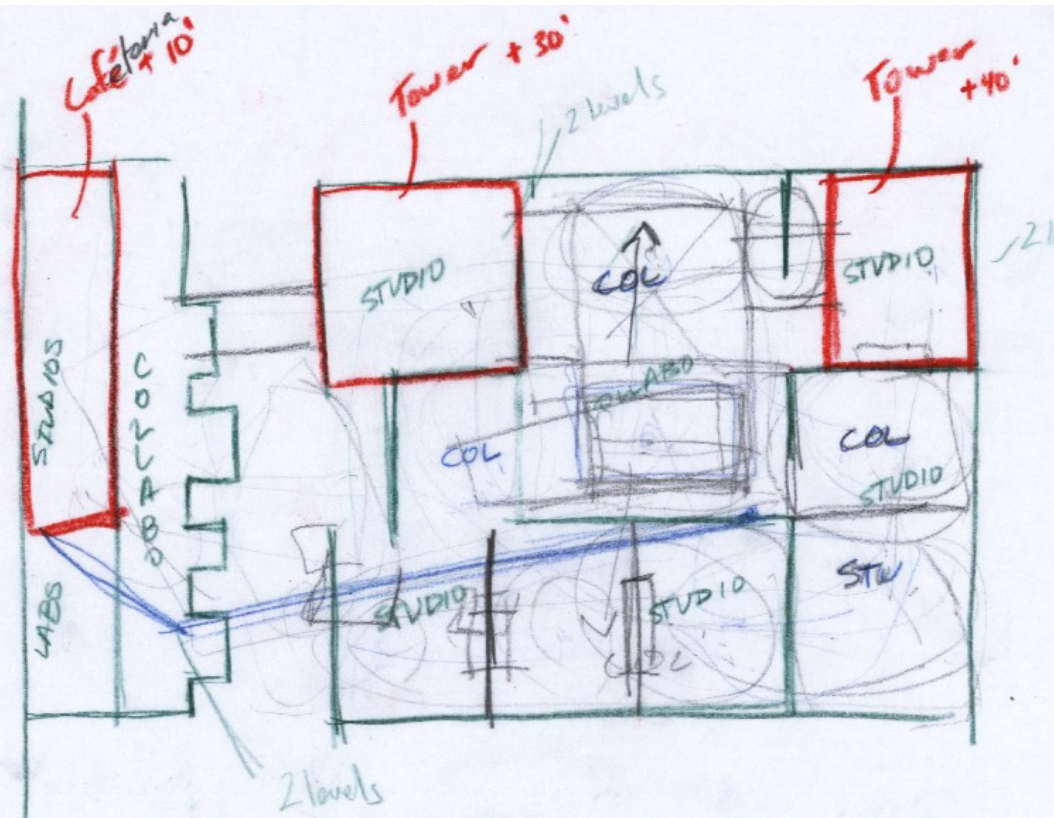 Cafétoria
+ 10'
Tower + 30'
2 levels
Tower
+40'
STUDIO
COL
STUDIO
STUDIOS
COLLABO
COL
COL
STUDIO
LABS
STUDIO
STUDIO
STU
2 levels